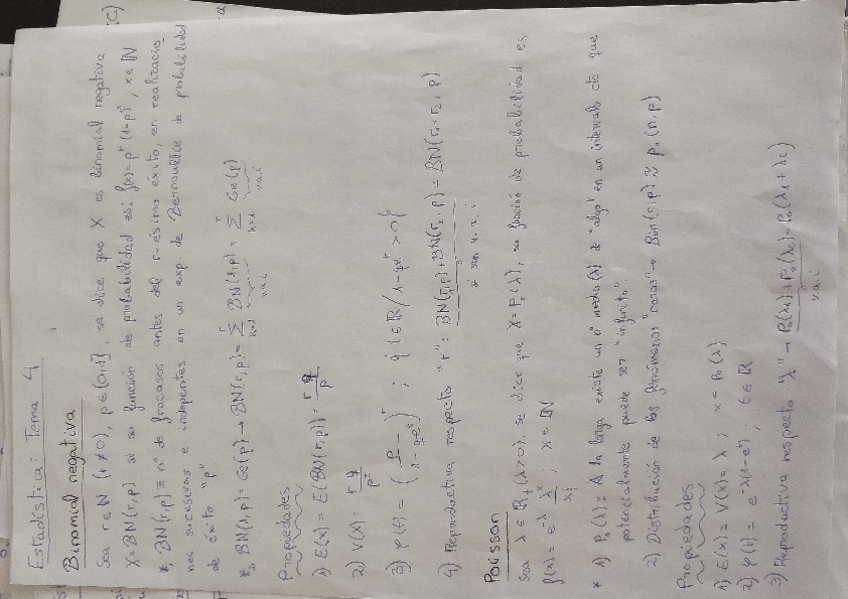 Estadística: Tema 4
Binomial negativa
Sea r∈N (r≠0), p∈(0,1], se dice que X es binomial negativa
X=BN(r,p) si su función de probabilidad es: f(x)= pʳ(1-p)ˣ ; x∈N
*₁ BN(r,p) ≡ nº de fracasos antes del r-ésimo éxito, en realizacio
nes sucesivas e indepentes en un exp. de Bernouille de probabilidad
de éxito "p"
*₂ BN(1,p)= Ge(p) → BN(r,p)= Σ BN(1,p) = Σ Ge(p)
k=1 k=1
v.a.i v.a.i
Propiedades
1) E(x) = E(BN(r,p)) = rq/p
2) V(X) = rq/p²
3) φ(t) = (p/(1-qeᵗ))ʳ ; { t∈R / 1-qeᵗ >0}
4) Reproductiva respecto "r": BN(r₁,p)+BN(r₂,p) = BN(r₁+r₂, p)
si son v.a.i
Poisson
Sea λ∈R₊ (λ>0), se dice que X=P₀(λ), su función de probabilidad es
f(x) = e^-λ λˣ/x! ; x∈N
* 1) P₀(λ) = A la larga existe un nº medio (λ) de "algo" en un intervalo de que
potencialmente puede ser "infinito"
2) Distribución de los fenómenos "raros" → Bin(n,p) ≈ P₀(n,p)
Propiedades
1) E(x) = V(x) = λ ; x∈P₀(λ)
2) φ(t) = e^-λ(1-eᵗ) ; t∈R
3) Reproductiva respecto "λ" → P₀(λ₁)+P₀(λ₂) = P₀(λ₁+λ₂)
v.a.i